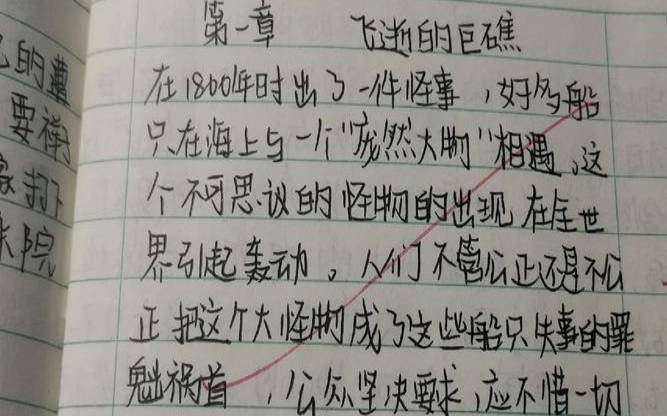 第一章 飞逝的巨礁
的遭
在1800年时出了一件怪事,好多船
要禅
只在海上与一个"庞然大物"相遇。这
个不可思议的怪物的出现在全世
院
界引起轰动。人们不管公正还是不公
正把这个大怪物成了这些船只失事的罪
魁祸首,公众坚决要求,应不惜一切